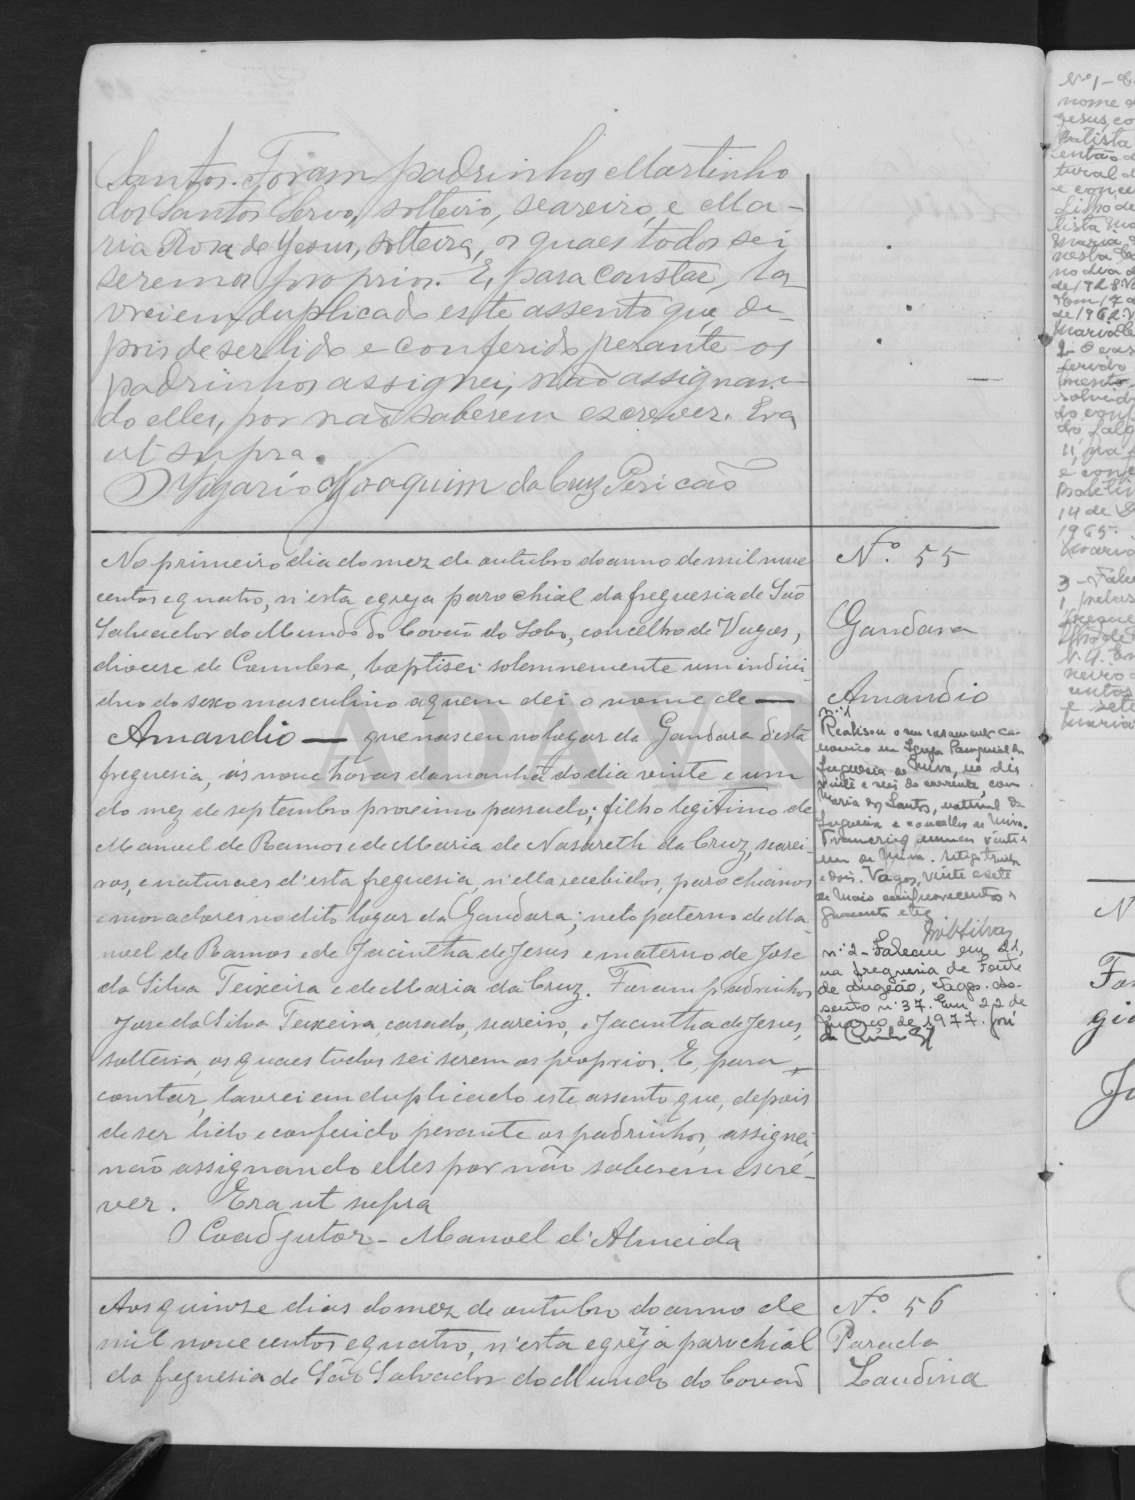 Santos. Foram padrinhos Martinho
dos Santos Servo, solteiro, seareiro, e Ma-
ria Rosa de Jesus, solteira, os quaes todos sei
serem os proprios. E, para constar, la-
vrei em duplicado este assento que, de-
pois de ser lido e conferido perante os
padrinhos assignei, não assignan-
do elles, por não saberem escrever. Era
ut supra.
O Vigario Joaquim da Cruz Pericão
No primeiro dia do mez de outubro do anno de mil nove
centos e quatro, n'esta egreja parochial da freguesia de São
Salvador do Mundo do Covão do Lobo, concelho de Vagos,
diocese de Coimbra, baptisei solemnemente um indivi-
duo do sexo masculino a quem dei o nome de —
Amandio — que nasceu no logar da Gandara d'esta
freguesia, ás nove horas da manhã do dia vinte e um
do mez de septembro proximo passado; filho legitimo de
Manuel de Ramos e de Maria de Nasareth da Cruz, searei-
ros, e naturaes d'esta freguesia, n'ella recebidos, parochianos
e moradores no dito logar da Gandara; neto paterno de Ma-
noel de Ramos e de Jacintha de Jesus e materno de Jose
da Silva Teixeira e de Maria da Cruz. Foram padrinhos
Jose da Silva Teixeira casado, seareiro, e Jacintha de Jesus,
solteira, os quaes todos sei serem os proprios. E, para
constar, lavrei em duplicado este assento que, depois
de ser lido e conferido perante os padrinhos, assignei,
não assignando elles por não saberem escre-
ver. Era ut supra
O Coadjutor - Manoel d'Almeida
Aos quinze dias do mez de outubro do anno de
mil nove centos e quatro, n'esta egreja parochial
da freguesia de São Salvador do Mundo do Covão
Nº. 55
Gandara
Amandio
nº 1
Realisou o seu casamento ca-
nonico na Igreja Paroquial da
freguesia de Mira, no dia
vinte e seis do corrente, com
Maria dos Santos, natural da
freguesia e concelho de Mira.
um de Mira.
e dois. Vagos, vinte e sete
de Maio
nº 2 - Faleceu em 21,
na freguesia de Fonte
de Angeão, Vagos. As-
sento nº 37. Em 22 de
Março de 1977.
Nº. 56
Parada
Laudina
ADAVR